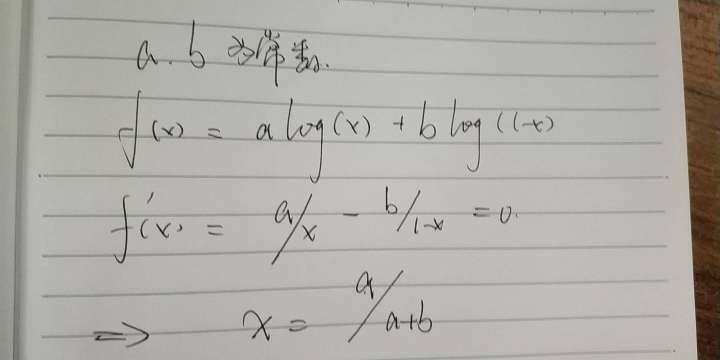 a.b 为常数.
f(x) = a log(x) + b log(1-x)
f'(x) = a/x - b/1-x = 0.
⇒ x = a/a+b